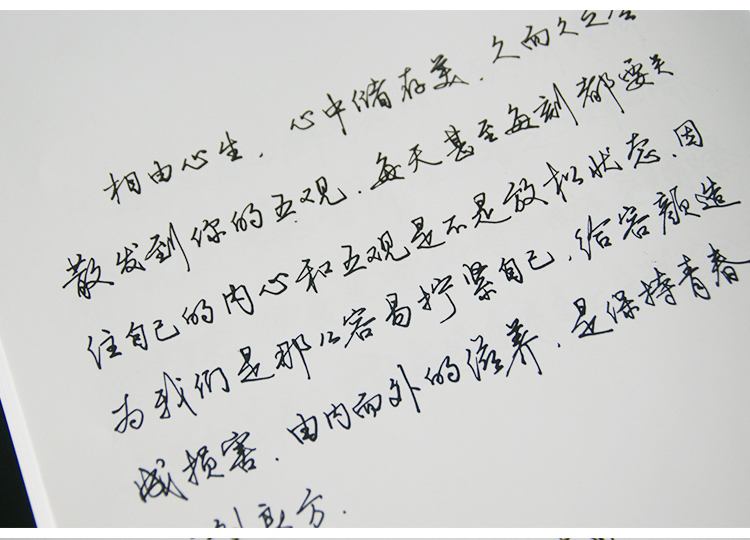 相由心生，心中储存美，久而久之会
散发到你的五观，每天甚至每刻都要关
注自己的内心和五观是不是放松状态，因
为我们是那么容易拧紧自己，给容颜造
成损害，由内而外的滋养，是保持青春
方．